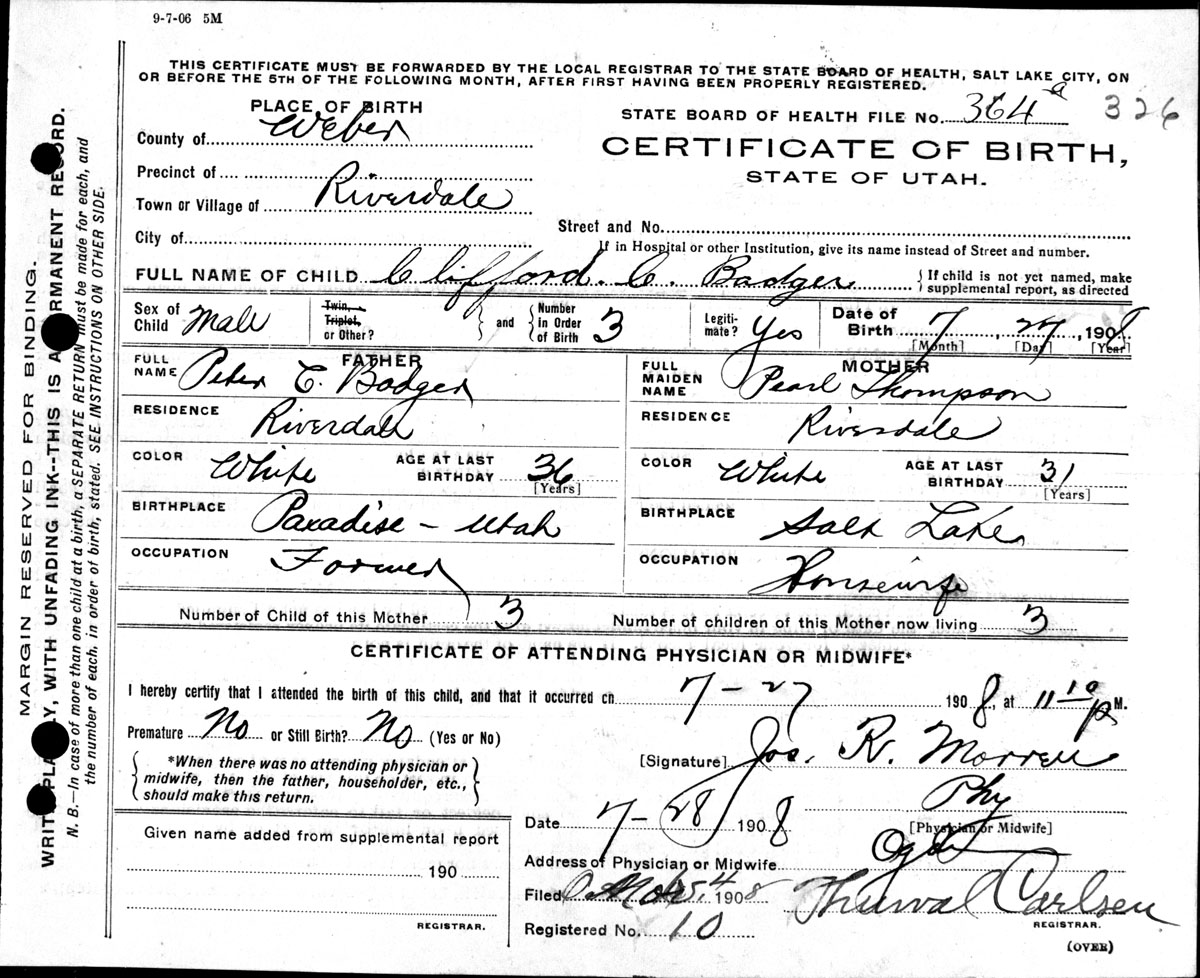 9-7-06 5M
THIS CERTIFICATE MUST BE FORWARDED BY THE LOCAL REGISTRAR TO THE STATE BOARD OF HEALTH, SALT LAKE CITY, ON
OR BEFORE THE 5TH OF THE FOLLOWING MONTH, AFTER FIRST HAVING BEEN PROPERLY REGISTERED.
PLACE OF BIRTH
STATE BOARD OF HEALTH FILE No. 364 a 326
County of Weber
CERTIFICATE OF BIRTH,
STATE OF UTAH.
Precinct of
Town or Village of Riverdale
Street and No.
City of
If in Hospital or other Institution, give its name instead of Street and number.
FULL NAME OF CHILD Clifford. C. Badger { If child is not yet named, make
supplemental report, as directed
Sex of Child Male Twin, Triplet, or Other? } and { Number in Order of Birth 3 Legiti-mate? Yes Date of Birth 7 27, 1908
[Month] [Day] [Year]
FATHER
FULL NAME Peter C. Badger
MOTHER
FULL MAIDEN NAME Pearl Thompson
RESIDENCE Riverdale
RESIDENCE Riverdale
COLOR White AGE AT LAST BIRTHDAY 36 [Years]
COLOR White AGE AT LAST BIRTHDAY 31 [Years]
BIRTHPLACE Paradise - Utah
BIRTHPLACE Salt Lake
OCCUPATION Farmer
OCCUPATION Housewife
Number of Child of this Mother 3 Number of children of this Mother now living 3
CERTIFICATE OF ATTENDING PHYSICIAN OR MIDWIFE*
I hereby certify that I attended the birth of this child, and that it occurred on 7-27 1908, at 11 10 p M.
Premature No or Still Birth? No (Yes or No)
[Signature] Jos. R. Morrell
*When there was no attending physician or
midwife, then the father, householder, etc.,
should make this return.
Phy
[Physician or Midwife]
Date 7-28 1908
Given name added from supplemental report
190
REGISTRAR.
Address of Physician or Midwife Ogden
Filed 4 1908 Thurval Carlsen
REGISTRAR.
Registered No. 10
(OVER)
MARGIN RESERVED FOR BINDING.
WRITE PLAINLY, WITH UNFADING INK--THIS IS A PERMANENT RECORD.
N. B.—In case of more than one child at a birth, a SEPARATE RETURN must be made for each, and
the number of each, in order of birth, stated. SEE INSTRUCTIONS ON OTHER SIDE.